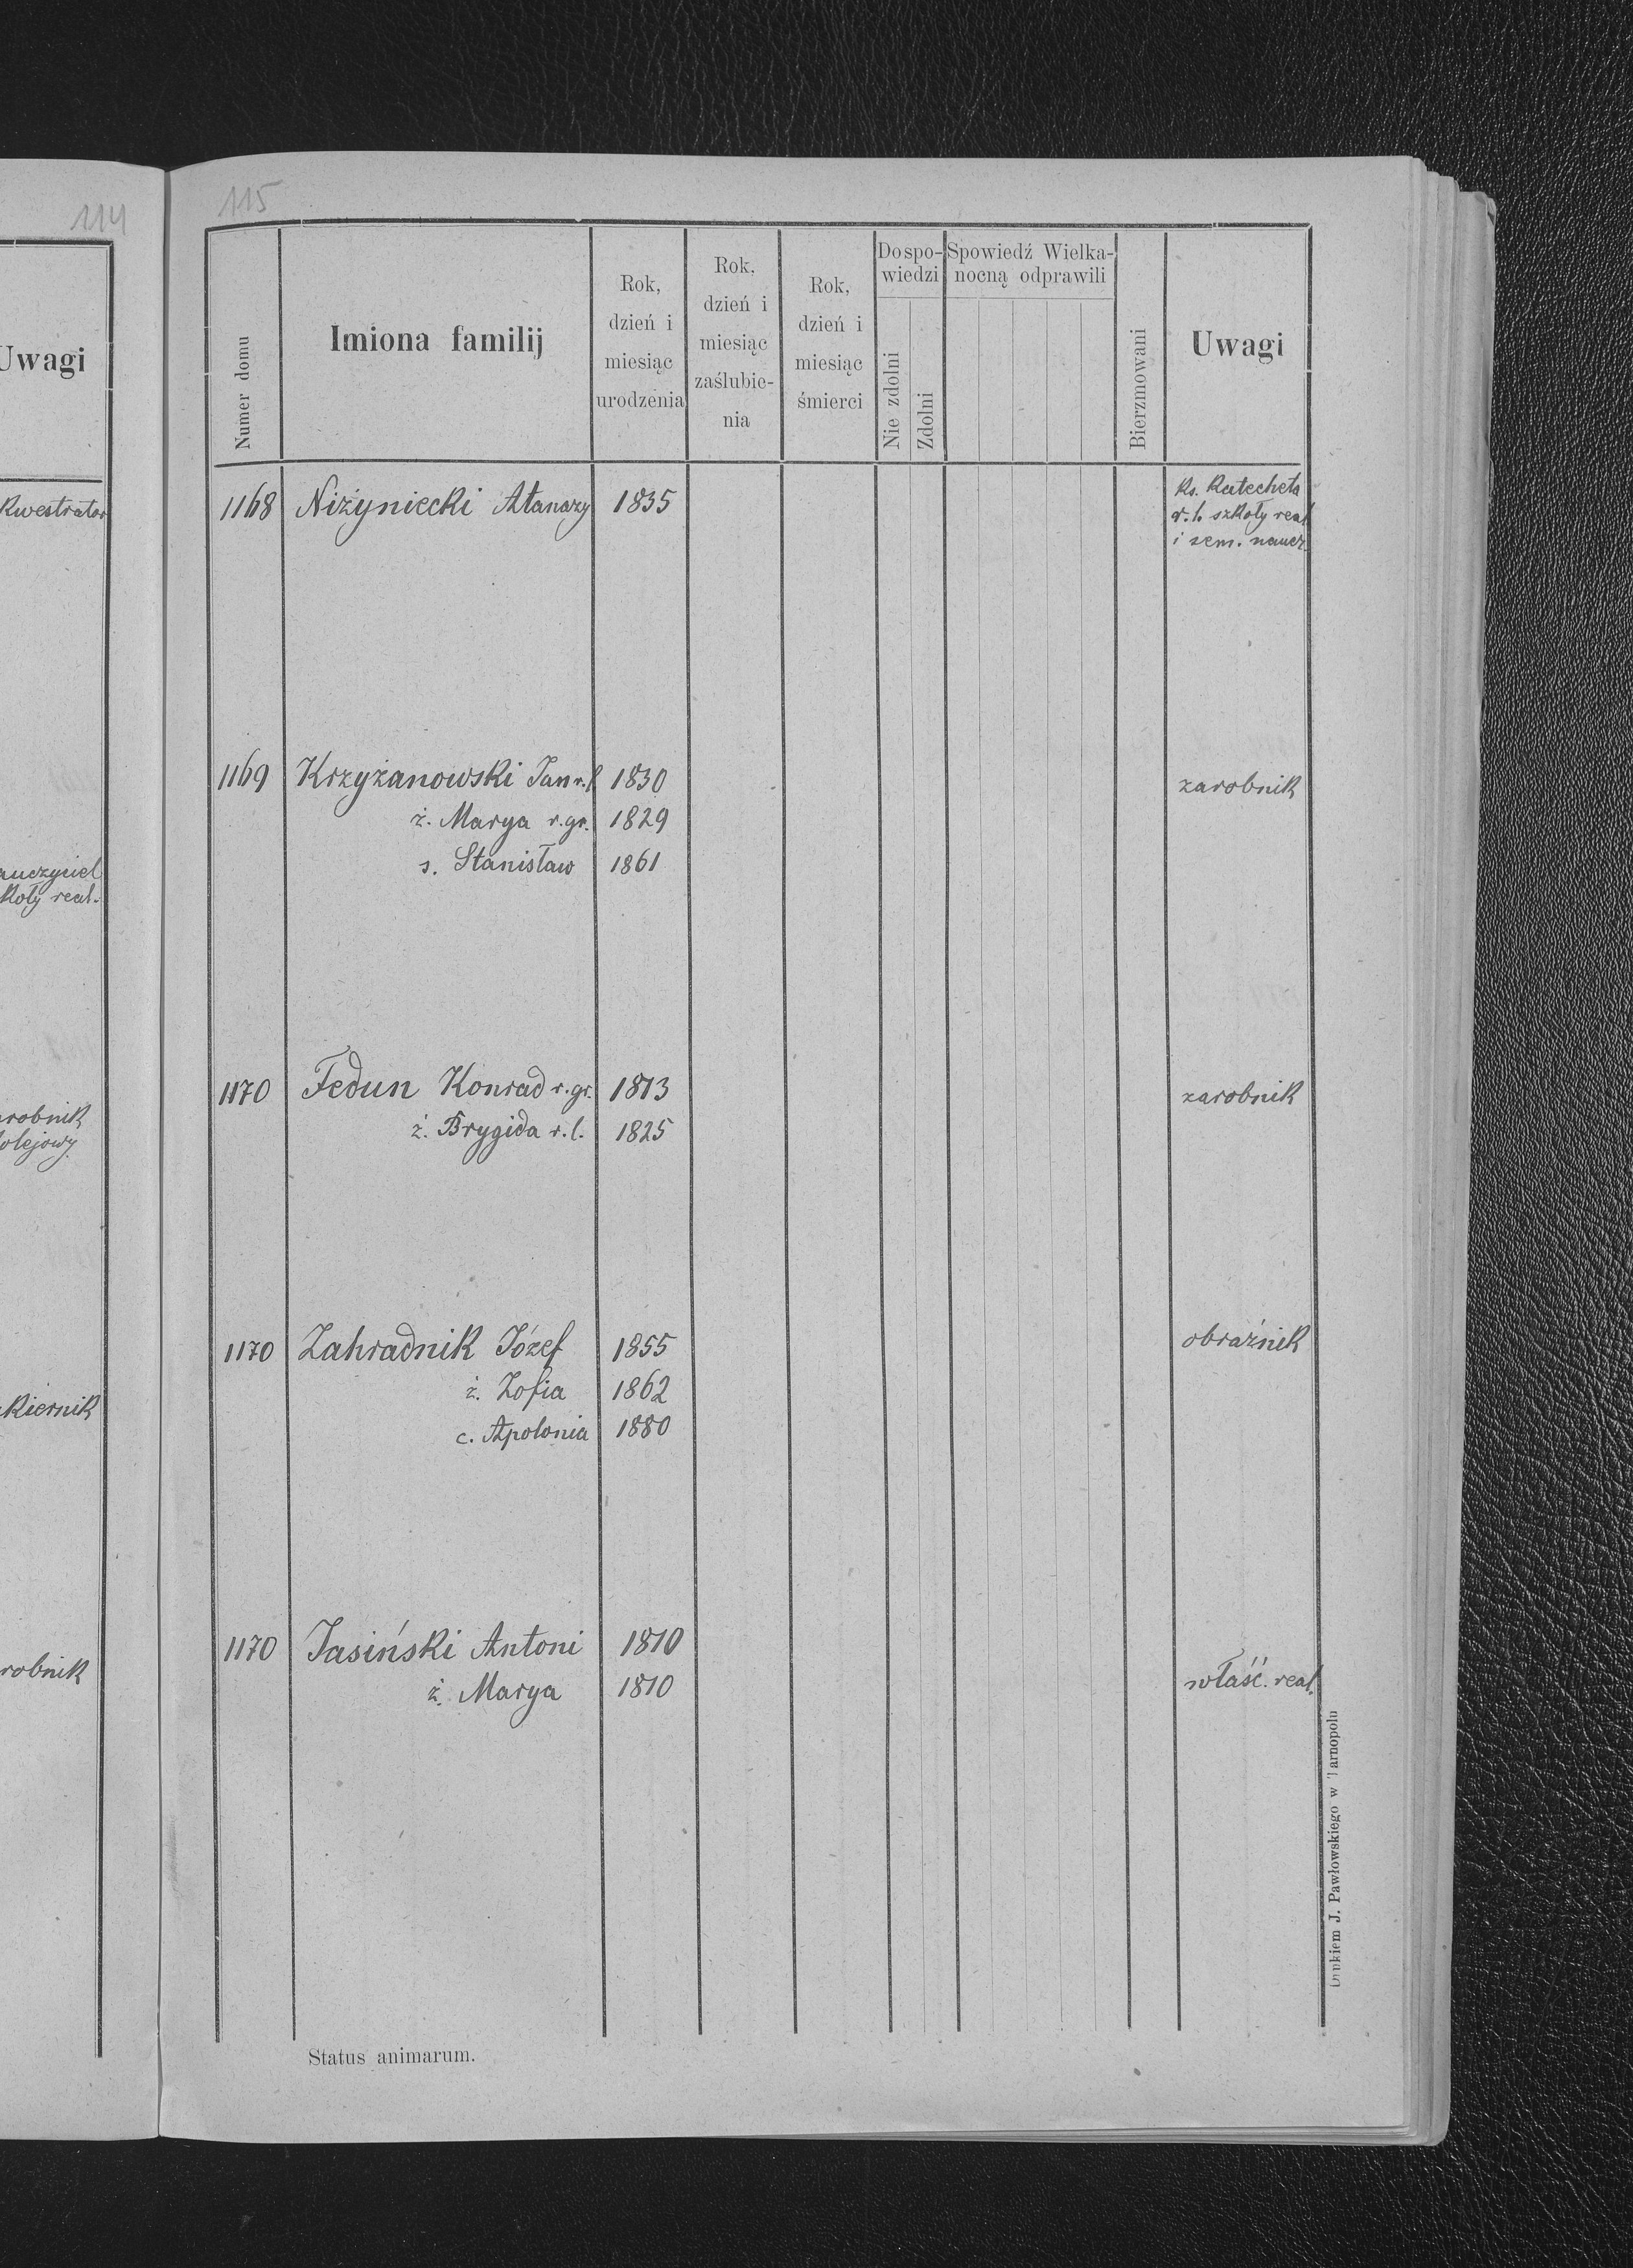 114
Uwagi
Kwestrator
koły real.
robnik
115
Numer domu
Imiona familij
Rok,
dzień i
miesiąc
urodzenia
Rok,
dzień i
miesiąc
zaślubie-
nia
Rok,
dzień i
miesiąc
śmierci
Do spo-
wiedzi
Nie zdolni
Zdolni
Spowiedź Wielka-
nocną odprawili
Bierzmowani
Uwagi
1168 Niżyniecki Atanazy 1835 Ks. Katecheta
szkoły real
i sem. naucz.
1169 Krzyżanowski Jan r.ł 1830 zarobnik
ż. Marya r.gr. 1829
s. Stanisław 1861
1170 Fedun Konrad r.gr. 1813 zarobnik
ż. Brygida r.l. 1825
1170 Zahradnik Józef 1855 obraźnik
ż. Zofia 1862
c. Apolonia 1880
1170 Jasiński Antoni 1810
ż. Marya 1810 właść. real.
Drukiem J. Pawłowskiego w Tarnopolu
Status animarum.